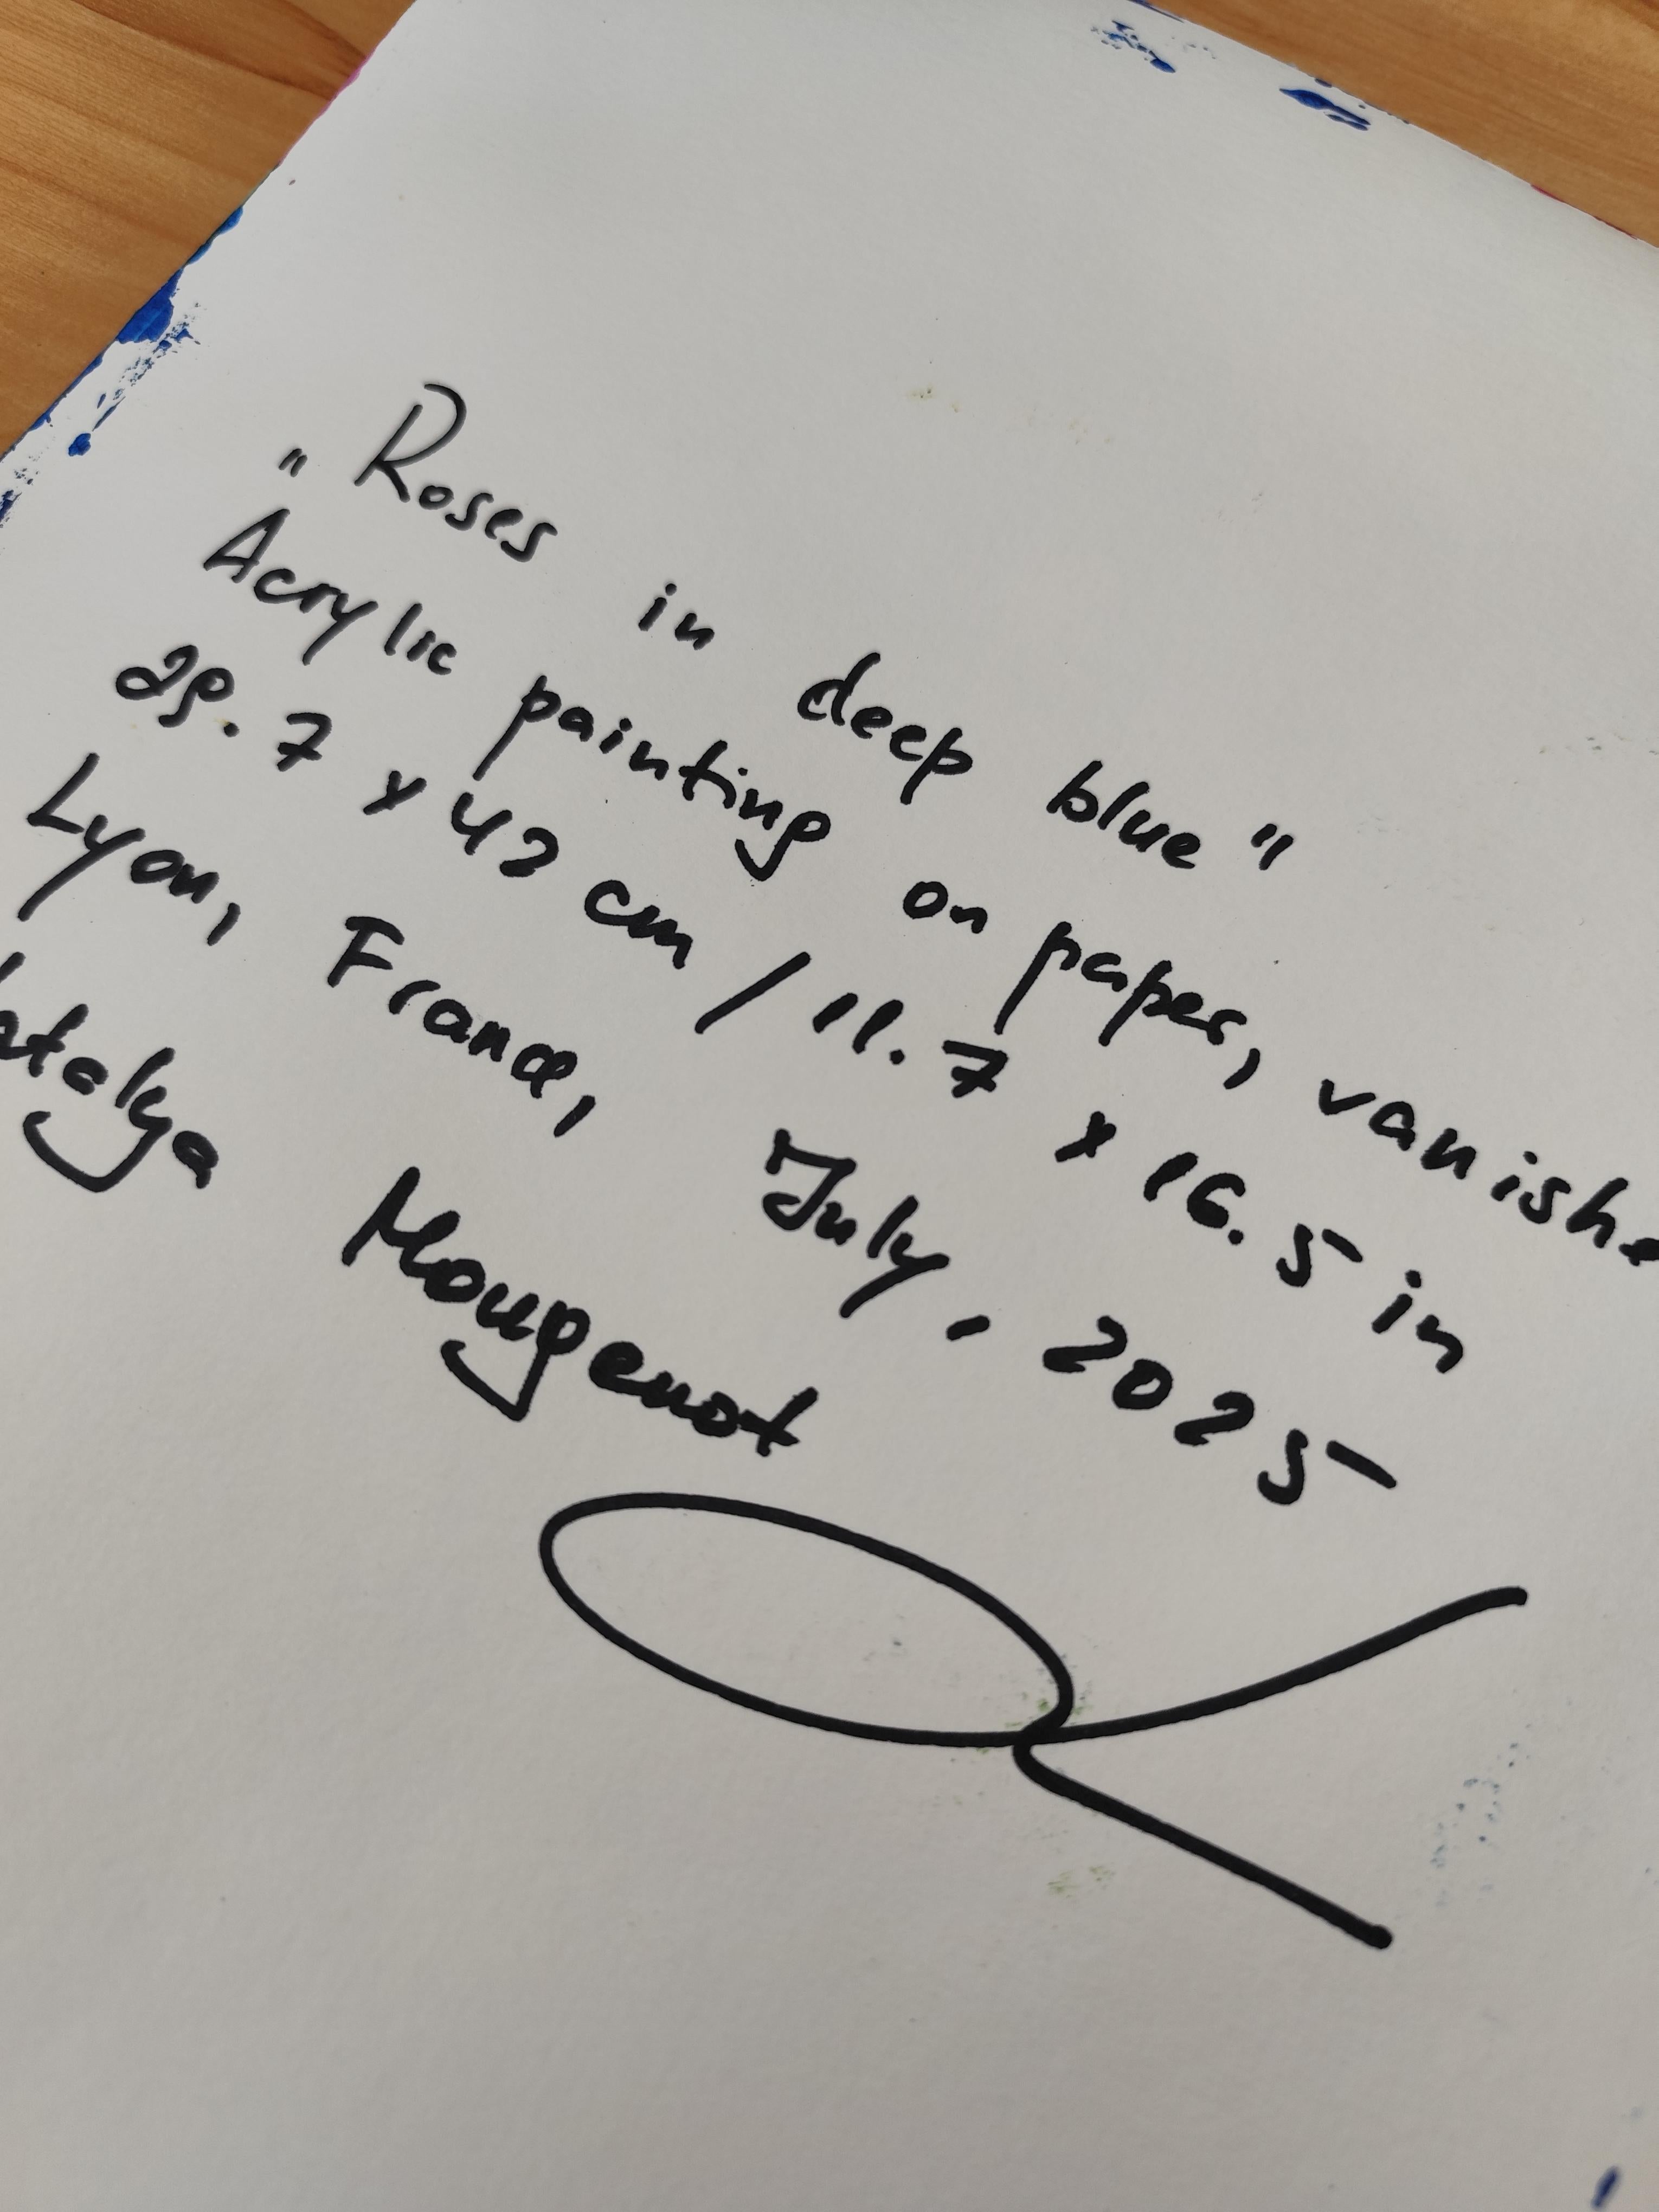 "Roses in deep blue"
Acrylic painting on paper, vanishe
29.7 x 42 cm / 11.7 x 16.5 in
Lyon, France, July, 2025
atalya Mougenot